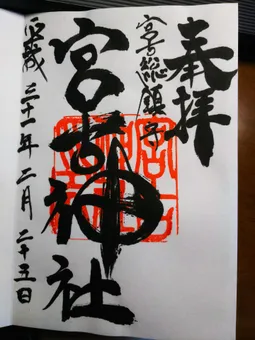 奉拝
宮古総鎮守
宮古神社
平成三十一年二月二十五日